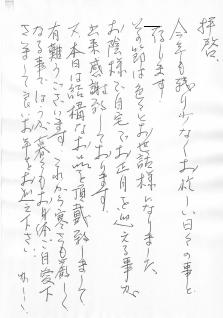 拝啓、
今年も残り少なくお忙しい日々の事と
存じます。
その節は色々とお世話様になりました。
お陰様で自宅でお正月を迎える事が
出来感謝致しております。
又本日は結構なお品を頂戴致しまして
有難うございます。これから寒さも厳しく
なる事でしょう 呉々もお身体ご自愛下
さいまして良いお年をお迎え下さい。
かしこ